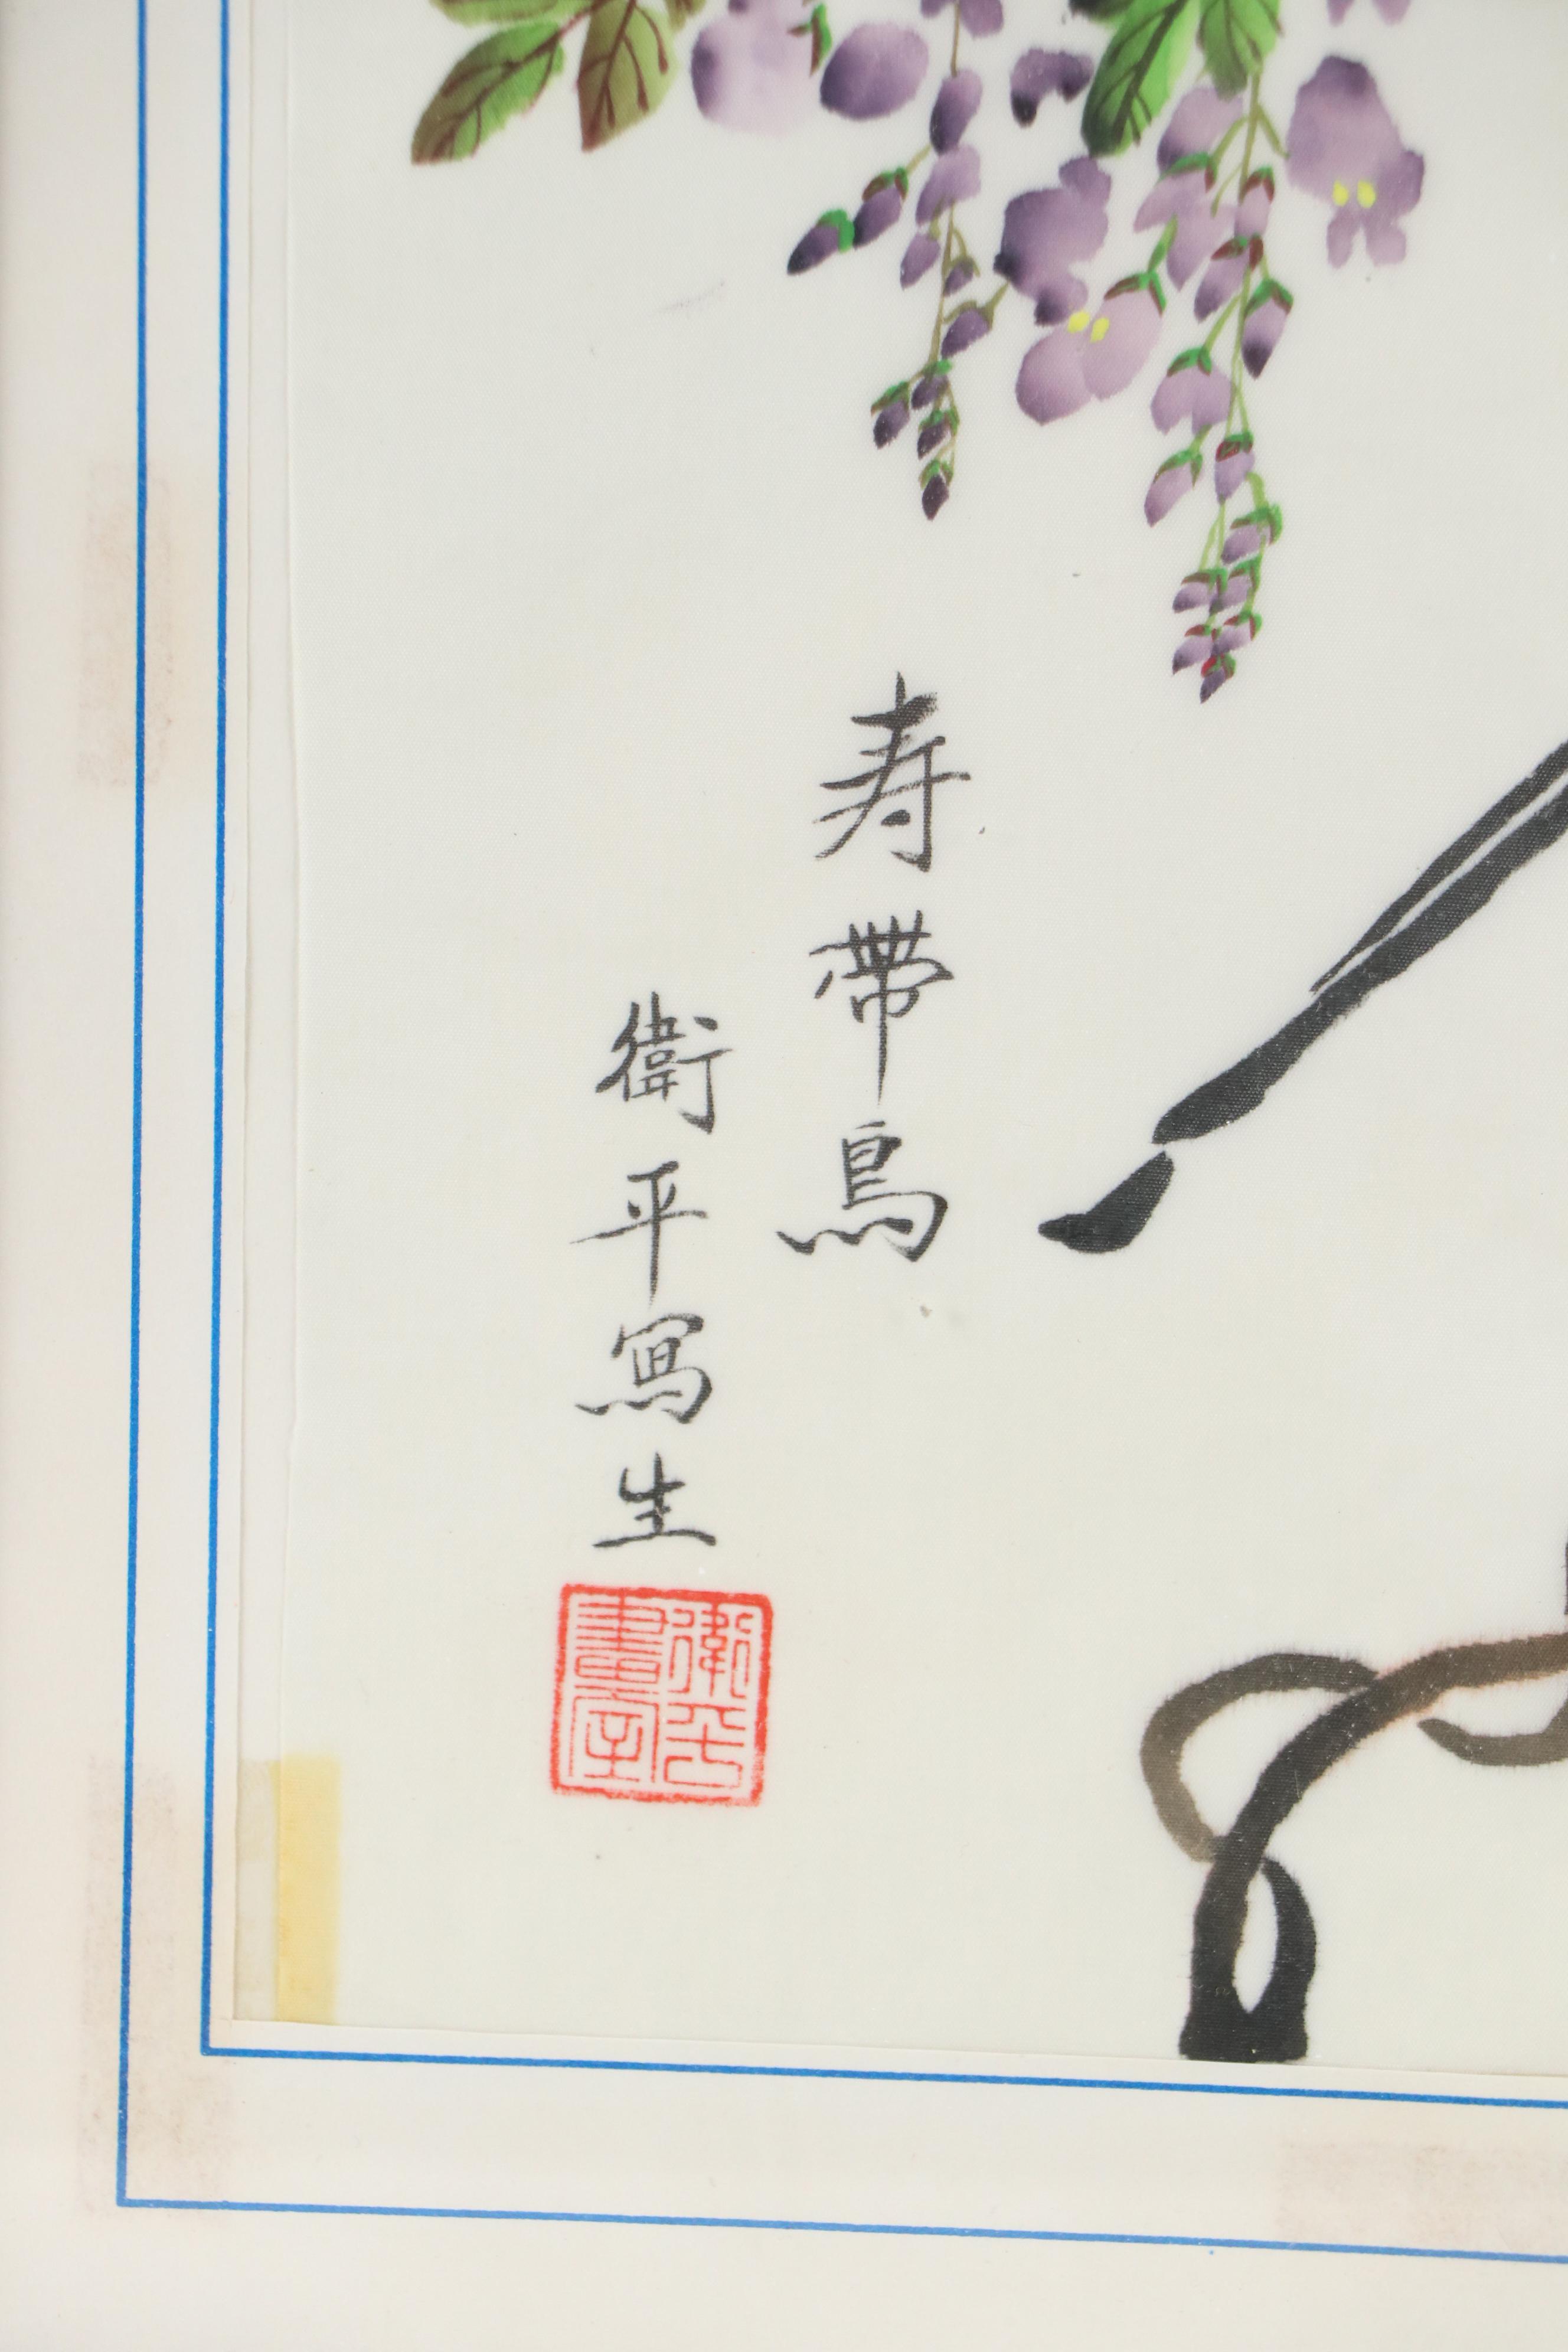 寿帶鳥
衛平寫生
衛平
書室